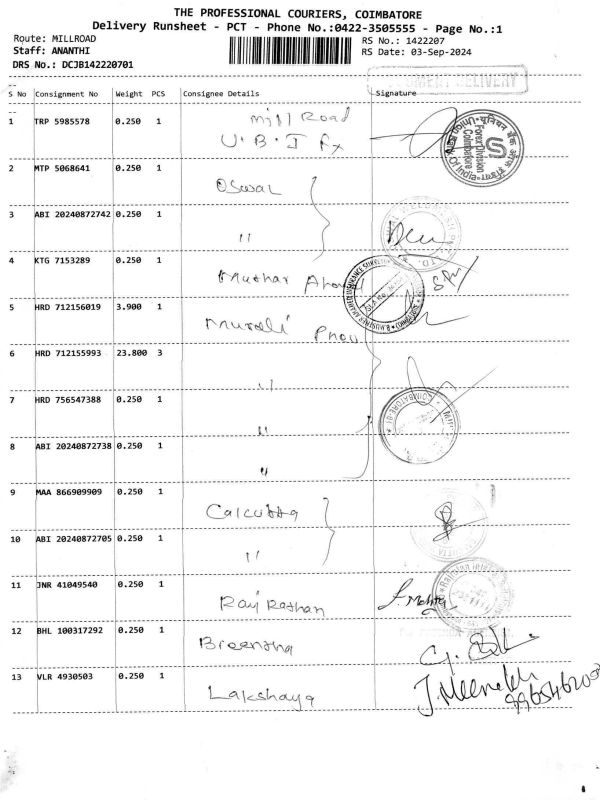 THE PROFESSIONAL COURIERS, COIMBATORE
Delivery Runsheet - PCT - Phone No.:0422-3505555 - Page No.:1
Route: MILLROAD
RS No.: 1422207
Staff: ANANTHI
RS Date: 03-Sep-2024
DRS No.: DCJB142220701
DOCUMENT DELIVERY
S No Consignment No Weight PCS Consignee Details Signature
1 TRP 5985578 0.250 1 Mill Road
U.B.I Fx
Union Bank Of India
Forex Division
Coimbatore
2 MTP 5068641 0.250 1 Oswal
3 ABI 20240872742 0.250 1 "
4 KTG 7153289 0.250 1 Muthar
5 HRD 712156019 3.900 1 Murali
6 HRD 712155993 23.800 3 "
7 HRD 756547388 0.250 1 "
COIMBATORE
8 ABI 20240872738 0.250 1 "
9 MAA 866909909 0.250 1 Calcutta
10 ABI 20240872705 0.250 1 "
11 JNR 41049540 0.250 1 Raj Rathan
12 BHL 100317292 0.250 1
13 VLR 4930503 0.250 1 Lakshaya
J. Meenakshi